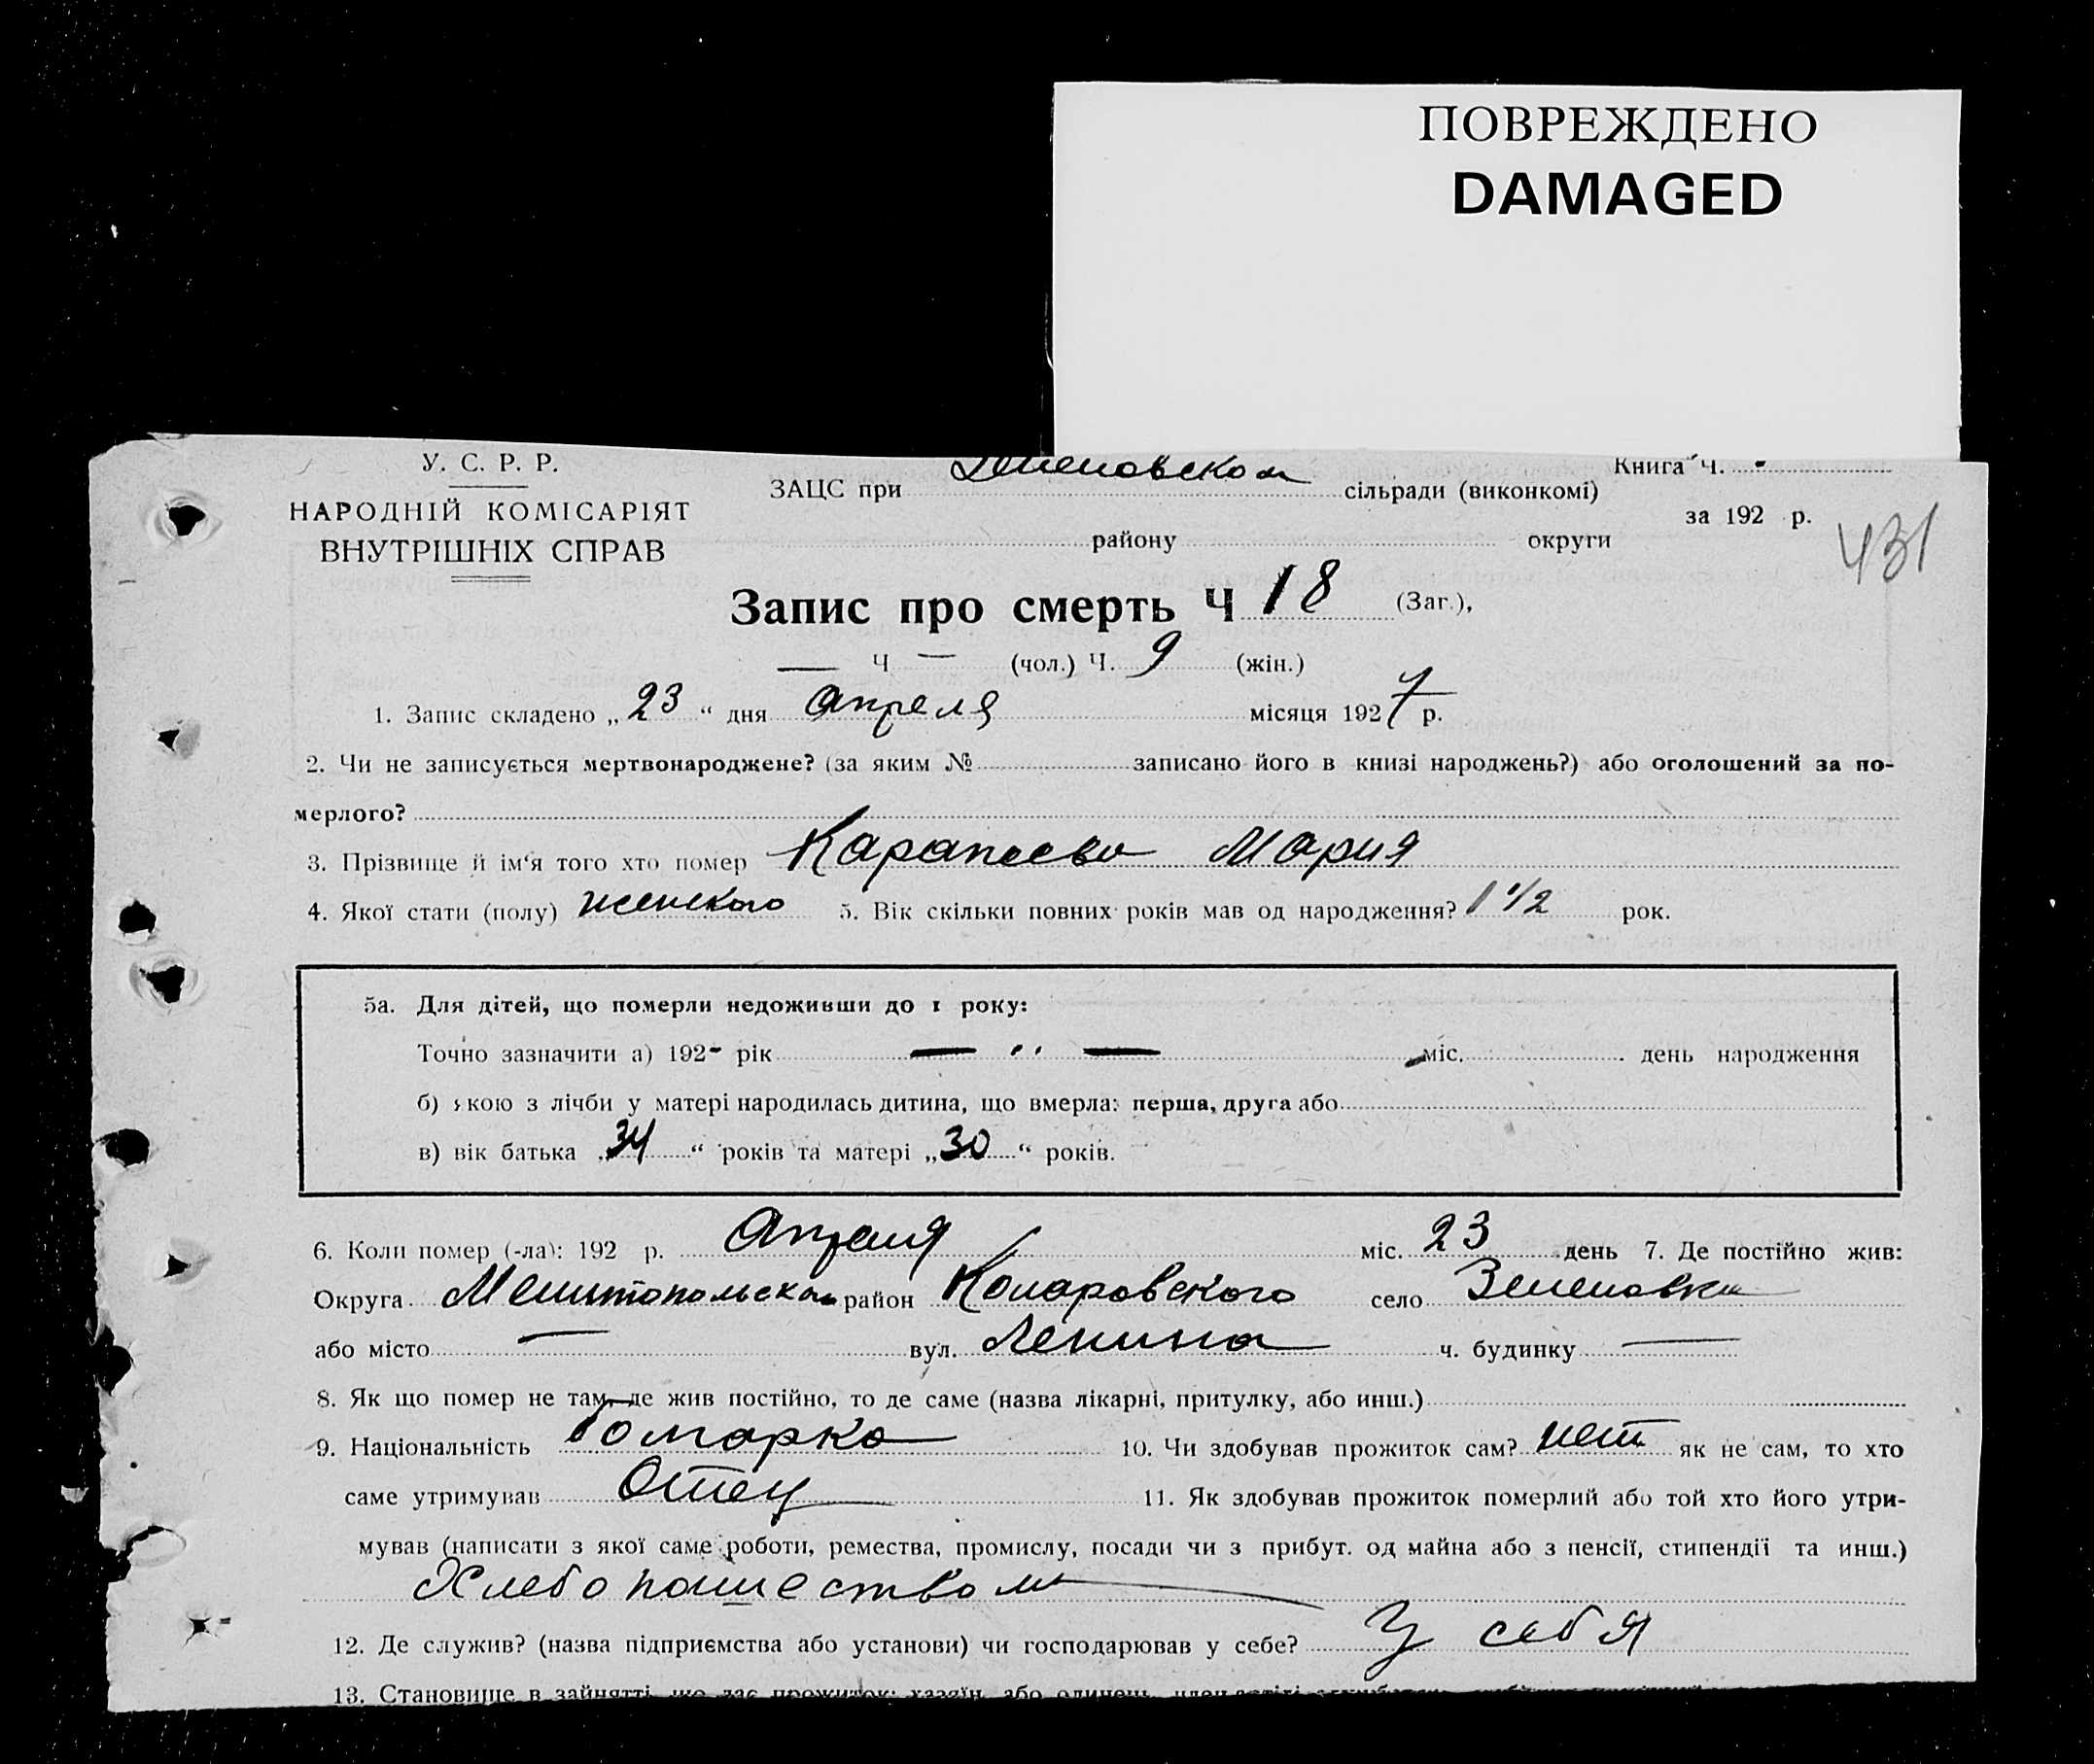 ПОВРЕЖДЕНО
DAMAGED
У. С. Р. Р.
НАРОДНІЙ КОМІСАРІЯТ
ВНУТРІШНІХ СПРАВ
Книга Ч.
ЗАЦС при Зеленовском сільради (виконкомі)
за 192 р.
району округи
431
Запис про смерть Ч 18 (Заг.),
— Ч — (чол.) Ч. 9 (жін.)
1. Запис складено „23“ дня Апреля місяця 1927 р.
2. Чи не записується мертвонароджене? (за яким № записано його в книзі народжень?) або оголошений за по-
мерлого?
3. Прізвище й ім‘я того хто помер Мария
4. Якої стати (полу) женского 5. Вік скільки повних років мав од народження? 1 1/2 рок.
5а. Для дітей, що померли недоживши до 1 року:
Точно зазначити а) 192- рік — „ — міс. день народження
б) якою з лічби у матері народилась дитина, що вмерла: перша, друга або
в) вік батька „34“ років та матері „30“ років.
6. Коли помер (-ла): 192 р. Апреля міс. 23 день 7. Де постійно жив:
Округа Мелитопольская район Коларовского село Зеленовка
або місто — вул. Ленина ч. будинку —
8. Як що помер не там, де жив постійно, то де саме (назва лікарні, притулку, або инш.)
9. Національність болгарка 10. Чи здобував прожиток сам? нет як не сам, то хто
саме утримував Отец 11. Як здобував прожиток померлий або той хто його утри-
мував (написати з якої саме роботи, ремества, промислу, посади чи з прибут. од майна або з пенсії, стипендії та инш.)
Хлебопашеством
12. Де служив? (назва підприємства або установи) чи господарював у себе? У себя
13. Становище в зайнятті, що дає прожиток: хазяїн, або одинець, член